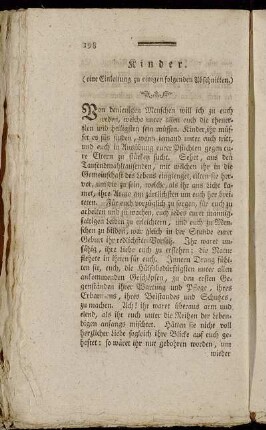 198
Kinder.
(eine Einleitung zu einigen folgenden Abschnitten.)
Von denjenigen Menschen will ich zu euch
reden, welche unter allen euch die theuer-
sten und heiligsten seyn müssen. Kinder, ihr müs-
set es fühlen, wann jemand euch,
und euch in Ausübung eurer Pflichten gegen eu-
re Eltern zu stärken sucht. Sehet, aus den
Tausendmahltausenden, mit welchen ihr in die
Gemeinschaft des Lebens einginget, eilten sie her-
vor, um die zu seyn, welche, als ihr uns nicht kann-
tet, ihre Arme am zärtlichsten um euch her brei-
teten. Für euch vorzüglich zu sorgen, für euch zu
arbeiten und zu wachen, auch euch jeden
Leben zu erleichtern, und euch zu Men-
schen zu bilden, war gleich in der Stunde eurer
Geburt ihr redlichster Vorsatz. Ihr waret un-
fähig, ihre Liebe euch zu erflehen; die Natur
flehete in ihnen für euch. Innern Drang fühl-
ten sie, euch, die Hülfsbedürftigsten unter allen
ankommenden Geschöpfen, zu den ersten Ge-
genständen ihrer Wartung und Pflege, ihres
Erbarmens, ihres Beistandes und Schutzes,
zu machen. Ach! ihr waret überaus arm und
elend, als ihr euch unter die Reihen der Leben-
digen anfangs mischtet. Hätten sie nicht voll
herzlicher Liebe sogleich ihre Blicke auf euch ge-
heftet: so wäret ihr nur gebohren worden, um
wieder